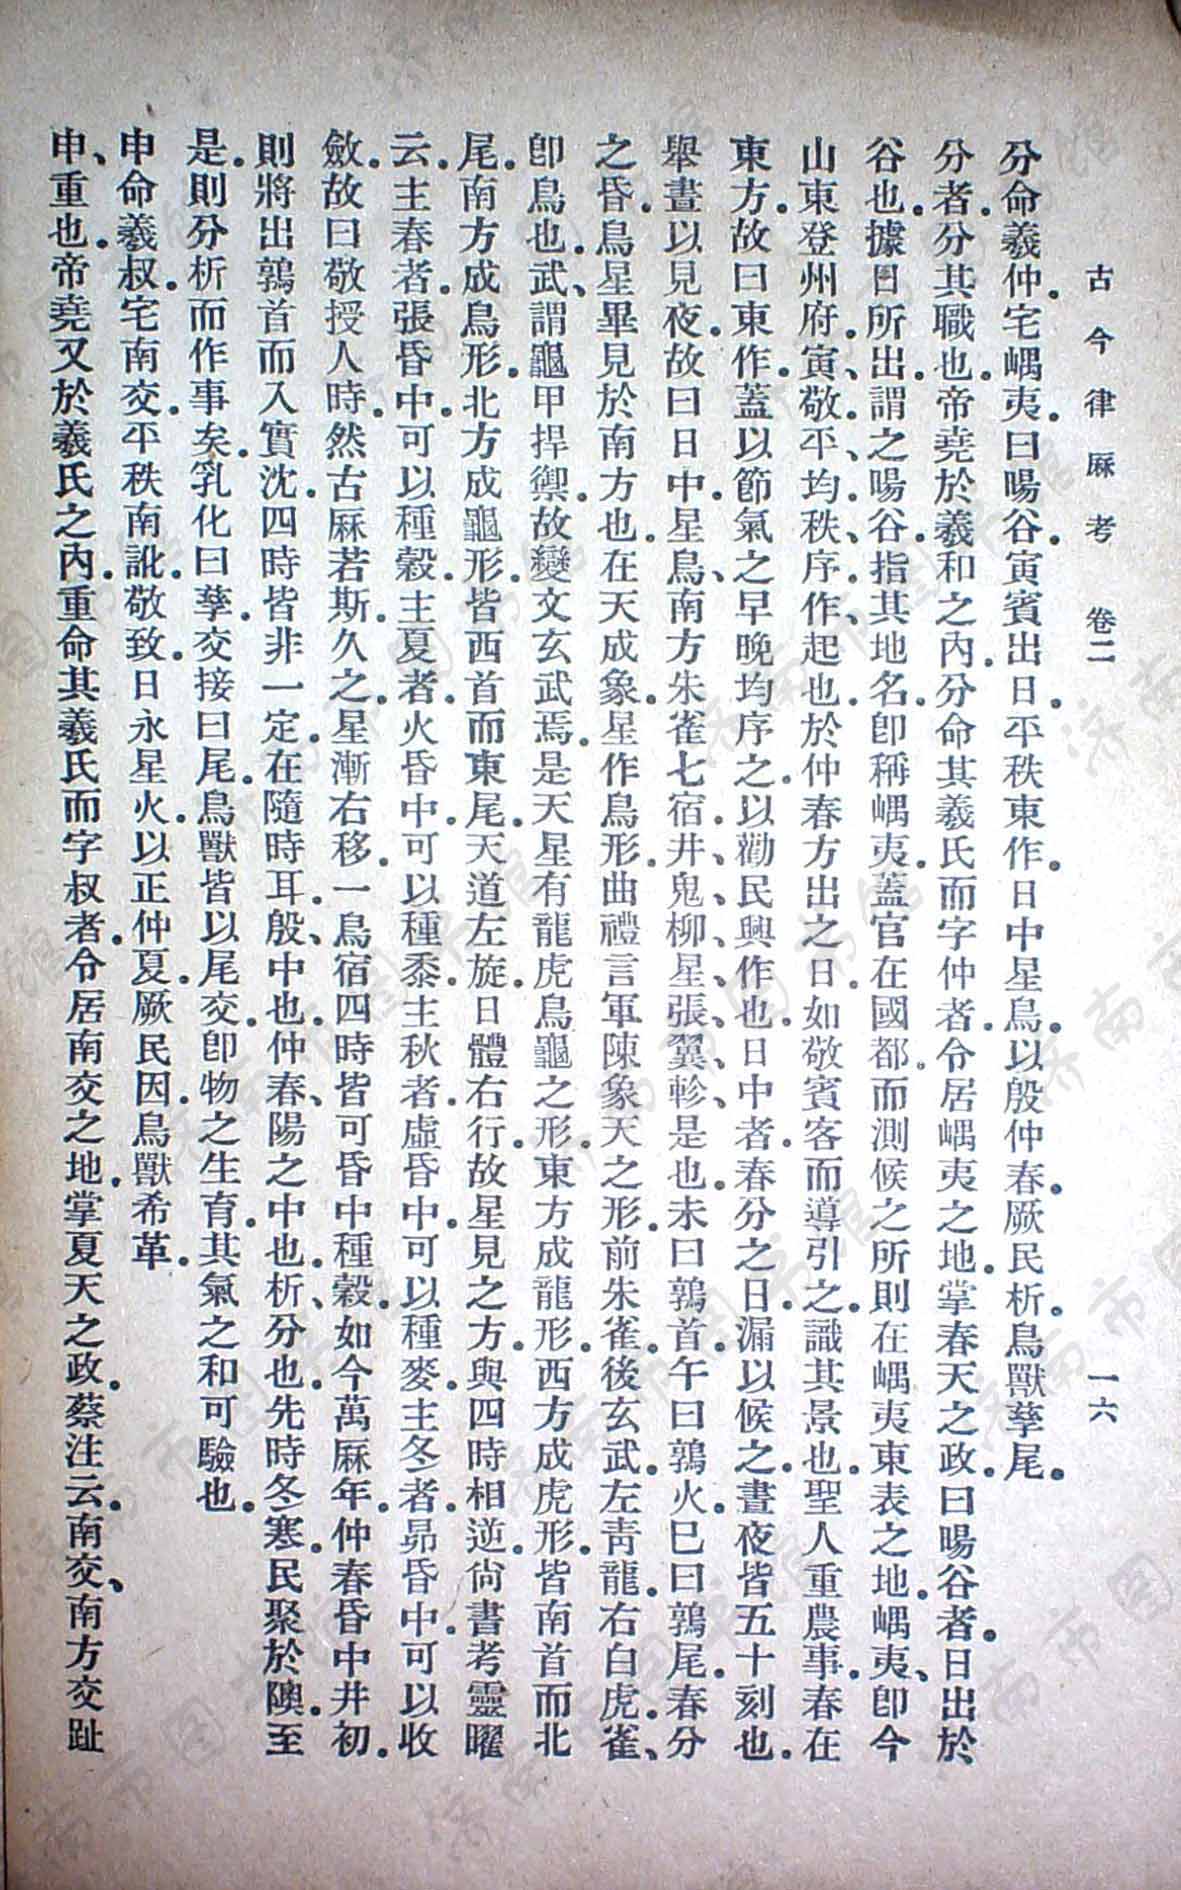 古今律厤考 卷二 一六
分命羲仲。宅嵎夷。曰暘谷。寅賓出日。平秩東作。日中星鳥。以殷仲春。厥民析。鳥獸孳尾。
分者。分其職也。帝堯於羲和之內。分命其羲氏而字仲者。令居嵎夷之地。掌春天之政。曰暘谷者。日出於
谷也。據日所出。謂之暘谷。指其地名。卽稱嵎夷。蓋官在國都。而測候之所。則在嵎夷東表之地。嵎夷、卽今
山東登州府。寅、敬。平、均。秩、序。作、起也。於仲春方出之日。如敬賓客而導引之。識其景也。聖人重農事。春在
東方。故曰東作。蓋以節氣之早晚均序之。以勸民興作也。日中者。春分之日。漏以候之。晝夜皆五十刻也。
舉晝以見夜。故曰日中。星鳥、南方朱雀七宿。井、鬼、柳、星、張、翼、軫、是也。未曰鶉首。午曰鶉火。巳曰鶉尾。春分
之昏。鳥星畢見於南方也。在天成象。星作鳥形。曲禮言軍陳象天之形。前朱雀。後玄武。左青龍。右白虎。雀、
卽鳥也。武、謂龜甲捍禦。故變文玄武焉。是天星有龍虎鳥龜之形。東方成龍形。西方成虎形。皆南首而北
尾。南方成鳥形。北方成龜形。皆西首而東尾。天道左旋。日體右行。故星見之方。與四時相逆。尙書考靈曜
云。主春者。張昏中。可以種穀。主夏者。火昏中。可以種黍。主秋者。虛昏中。可以種麥。主冬者。昴昏中。可以收
斂。故曰敬授人時。然古厤若斯。久之。星漸右移。一鳥宿四時皆可昏中種穀。如今萬厤年。仲春昏中井初。
則將出鶉首而入實沈。四時皆非一定。在隨時耳。殷、中也。仲春、陽之中也。析、分也。先時冬寒。民聚於隩。至
是。則分析而作事矣。乳化曰孳。交接曰尾。鳥獸皆以尾交。卽物之生育。其氣之和可驗也。
申命羲叔。宅南交。平秩南訛。敬致。日永星火。以正仲夏。厥民因。鳥獸希革。
申、重也。帝堯又於羲氏之內。重命其羲氏而字叔者。令居南交之地。掌夏天之政。蔡注云。南交、南方交趾